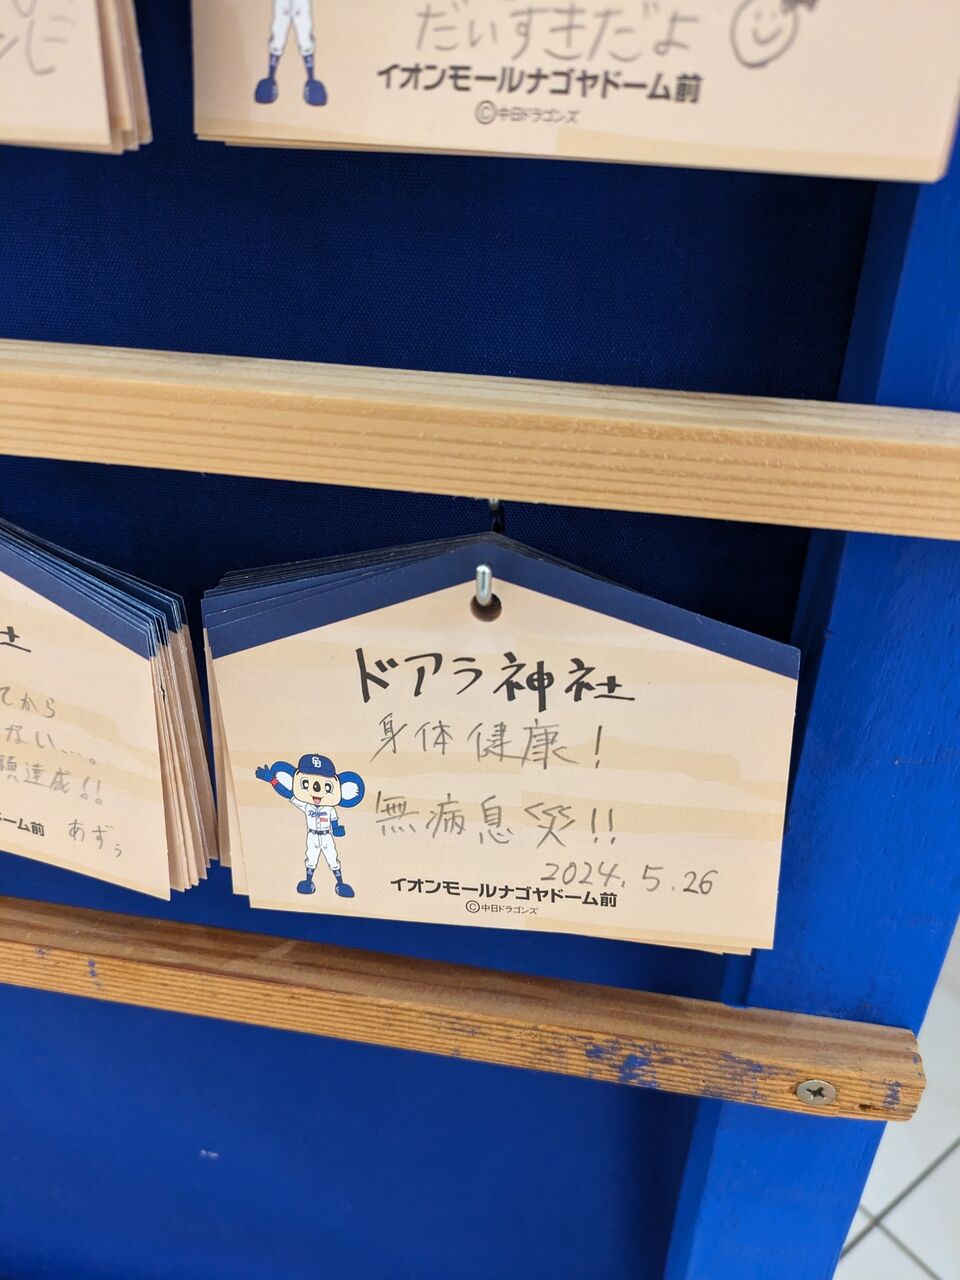 だいすきだよ
イオンモールナゴヤドーム前
©中日ドラゴンズ
ドアラ神社
身体健康！
無病息災!!
2024.5.26
イオンモールナゴヤドーム前
©中日ドラゴンズ
社
てから
ない…。
願達成!!
ーム前 あずぅ